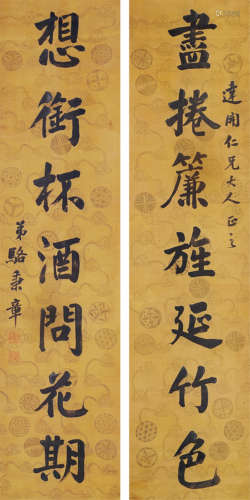 達開仁兄大人正之
盡捲簾旌延竹色
想銜杯酒問花期
弟駱秉章